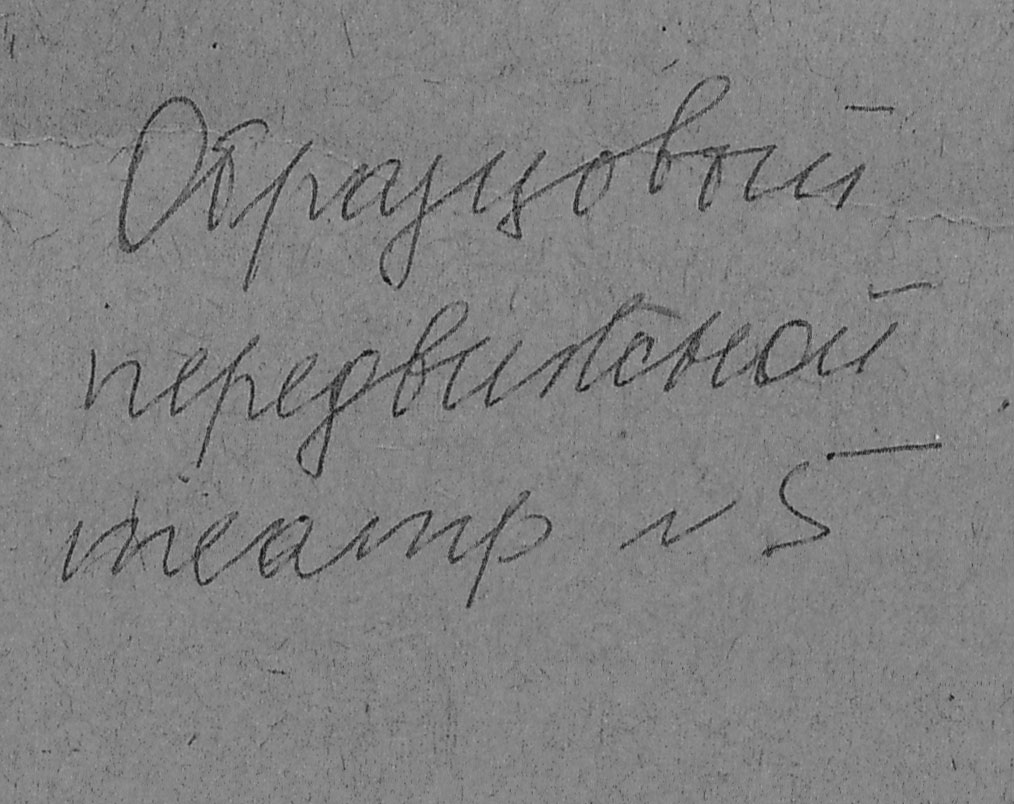 Образцовый
передвижной
театр N 5